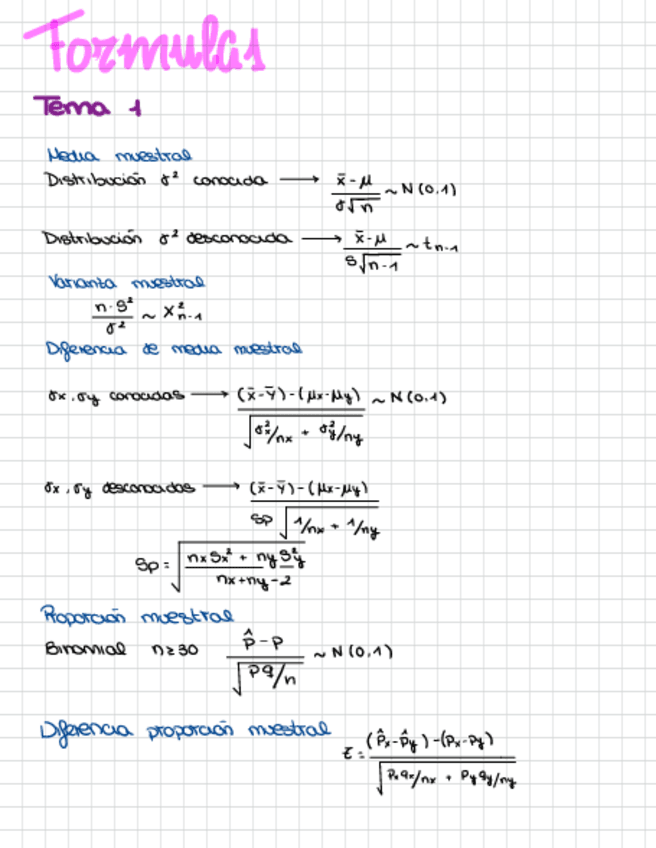 Formulas
Tema 1
Media muestral
Distribución σ² conocida ⟶ (x̄ - μ) / (σ√n) ~ N(0,1)
Distribución σ² desconocida ⟶ (x̄ - μ) / (S√(n-1)) ~ t n-1
Varianza muestral
(n · S²) / σ² ~ X² n-1
Diferencia de media muestral
σx, σy conocidas ⟶ ((x̄ - ȳ) - (μx - μy)) / √(σ²x/nx + σ²y/ny) ~ N(0,1)
σx, σy desconocidas ⟶ ((x̄ - ȳ) - (μx - μy)) / (Sp √(1/nx + 1/ny))
Sp = √((nx Sx² + ny S²y) / (nx + ny - 2))
Proporción muestral
Binomial n ≥ 30 (p̂ - p) / √(pq/n) ~ N(0,1)
Diferencia proporción muestral z = ((p̂x - p̂y) - (px - py)) / √(px qx/nx + py qy/ny)